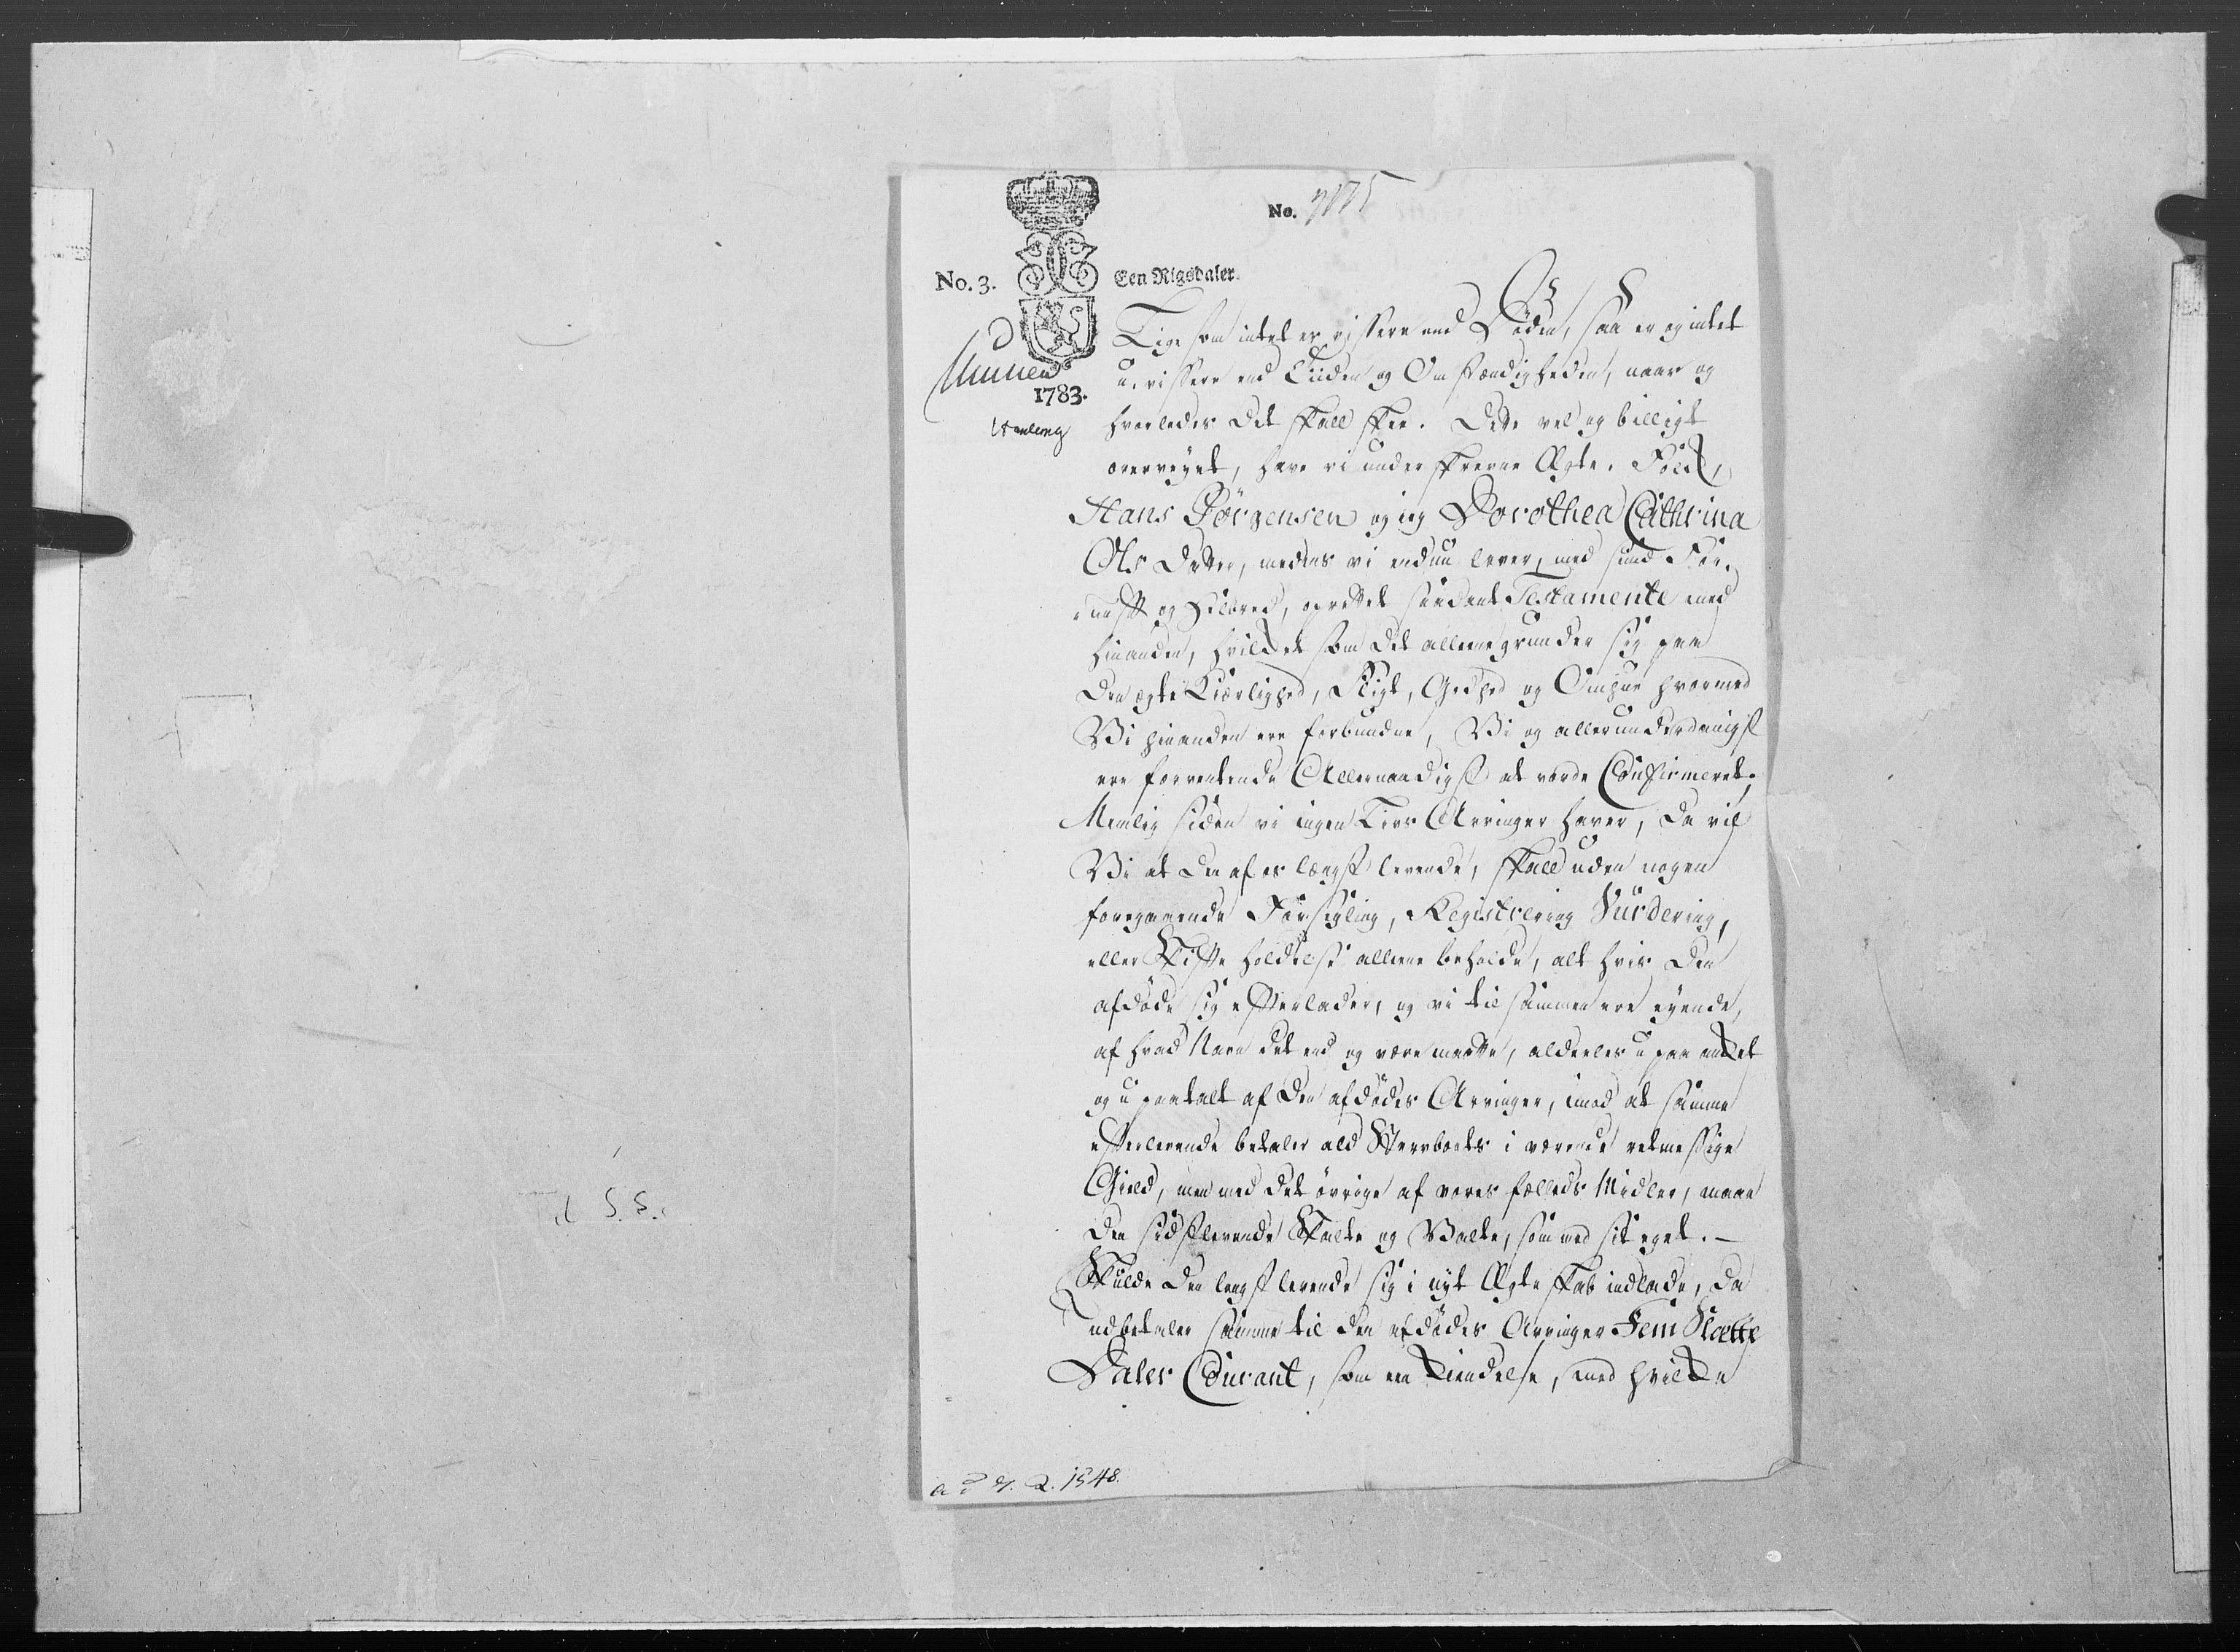 No. 7175
No. 3.
Een Rigsdaler.
1783.
Lige som intet er vissere end Døden, saa er og intet
u-vissere end Tiiden og Omstændigheden, naar og
hvorledes det skall skee. Dette vel og billigt
overveyet, have vi underskrevne Ægte-Folk,
Hans Jörgensen og ieg Dorothea Cathrina
Ols Datter, medens vi endnu lever, med sund For-
nufft og Villie, oprettet saadant Testamente med
hinanden, hvilket som det alleene grunder sig paa
den ægte Kiærlighed, Pligt, Eenhed og Omhue hvormed
Vi hinanden ere forbundne, Vi og allerunderdanigst
ere forventende Allernaadigst at vorde Confirmeret.
Nemlig siden vi ingen Livs Arvinger haver, da vil
Vi at den af os længst levende, skall uden nogen
foregaaende Forsegling, Registrering Vurdering,
eller Skifte holdelse alleene beholde, alt hvis den
afdøde sig efterlader, og vi tilsammen ere eyende,
af hvad Navn det end og være maatte, aldeeles u-paaanket
og u-paatalt af den afdødes Arvinger, imod at samme
efterlevende betaler ald Sterfboets i værende retmessige
Gield, men med det øvrige af vores fælleds Midler, maae
den sidstlevende Skalte og Valte, som med sit eget. –
Skulde den lengst levende sig i nyt Ægteskab indlade, da
udbetaler samme til den afdødes Arvinger Fem Slette
Daler Courant, som een Kiendelse, med hvilke
ad N. Q. 1548.
til S. S.